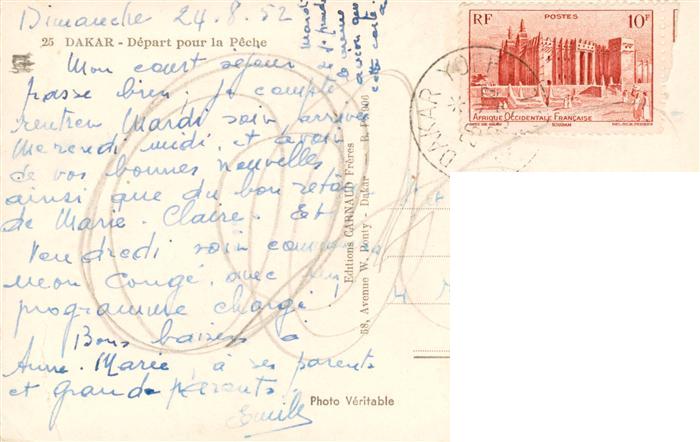 Dimanche 24.8.52
25 DAKAR - Départ pour la Pêche
Mon court séjour
passe bien, je compte
rentrer Mardi soir arriver
Mercredi midi, et avoir
de vos bonnes nouvelles
ainsi que du bon retour
de Marie-Claire. Et
Vendredi soir commence
mon Congé, avec un
programme chargé
Bons baisers à
Anne-Marie, à ses parents
et grands parents.
Emile
mardi
le même
avion que
cette carte
Editions CARNAUD Frères
58, Avenue W. Ponty - Dakar
Photo Véritable
RF POSTES 10F
AFRIQUE OCCIDENTALE FRANÇAISE
SOUDAN
DAKAR YOFF